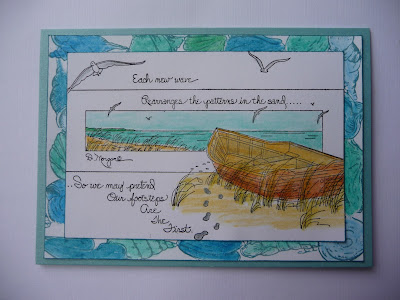 Each new wave
Rearranges the patterns in the sand.....
D. Morgan
...So we may pretend
Our footsteps
Are
The
First.